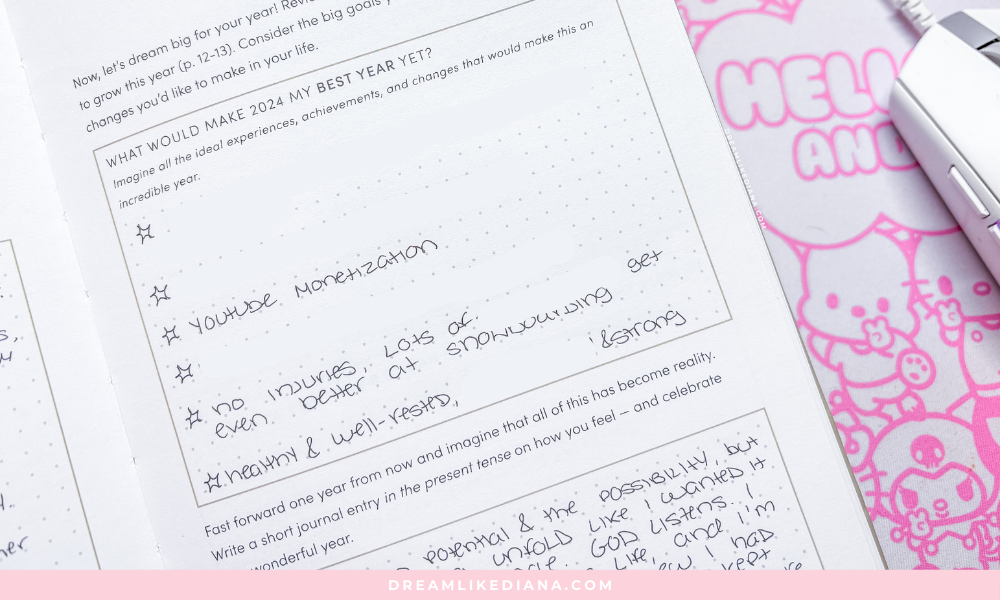 Now, let's dream big for your year!
to grow this year (p. 12-13). Consider the big goals
changes you'd like to make in your life.
WHAT WOULD MAKE 2024 MY BEST YEAR YET?
Imagine all the ideal experiences, achievements, and changes that would make this an
incredible year.
YouTube Monetization
get
no injuries, Lots of
even better at snowboarding
&strong
healthy & well-rested,
Fast forward one year from now and imagine that all of this has become reality.
Write a short journal entry in the present tense on how you feel — and celebrate
wonderful year.
potential & the possibility, but
unfold like I wanted it
God listens. I
life, and I'm
I had
kept
HELL
AND
DREAMLIKEDIANA.COM